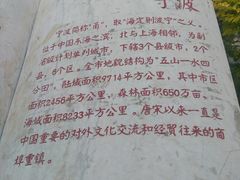 宁波
宁波简称"甬"，取"海定则波宁"之义，
位于中国东海之滨，北与上海相邻，为副
省级计划单列城市，下辖3个县级市，2个
县，6个区。全市地貌结构为"五山一水四
分田"。陆域面积9714平方公里，其中市区
面积2456平方公里，森林面积650万亩，
海域面积8233平方公里。唐宋以来一直是
中国重要的对外文化交流和经贸往来的商
埠重镇。